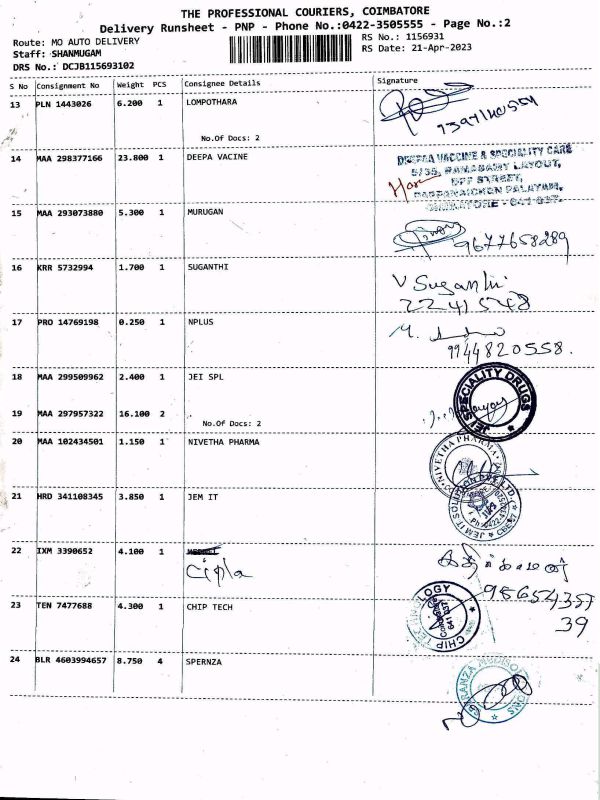 THE PROFESSIONAL COURIERS, COIMBATORE
Delivery Runsheet - PNP - Phone No.:0422-3505555 - Page No.:2
Route: MO AUTO DELIVERY
RS No.: 1156931
Staff: SHANMUGAM
RS Date: 21-Apr-2023
DRS No.: DCJB115693102
S No Consignment No Weight PCS Consignee Details Signature
13 PLN 1443026 6.200 1 LOMPOTHARA
No.Of Docs: 2
14 MAA 298377166 23.800 1 DEEPA VACINE
DEEPAA VACCINE & SPECIALITY CARE
5/35, RAMASAMY LAYOUT,
OFF STREET,
PAPPANAICKEN PALAYAM,
COIMBATORE - 641 037.
15 MAA 293073880 5.300 1 MURUGAN
9677658289
16 KRR 5732994 1.700 1 SUGANTHI
V Suganthi
22415248
17 PRO 14769198 0.250 1 NPLUS
9944820558.
18 MAA 299509962 2.400 1 JEI SPL
JEI SPECIALITY DRUGS
19 MAA 297957322 16.100 2
No.Of Docs: 2
20 MAA 102434501 1.150 1 NIVETHA PHARMA
NIVETHA PHARMA
21 HRD 341108345 3.850 1 JEM IT
JEM IT SOLUTION PVT LTD
22 IXM 3390652 4.100 1
Cipla
23 TEN 7477688 4.300 1 CHIP TECH
CHIP TECHNOLOGY
641 037
39
24 BLR 4603994657 8.750 4 SPERNZA